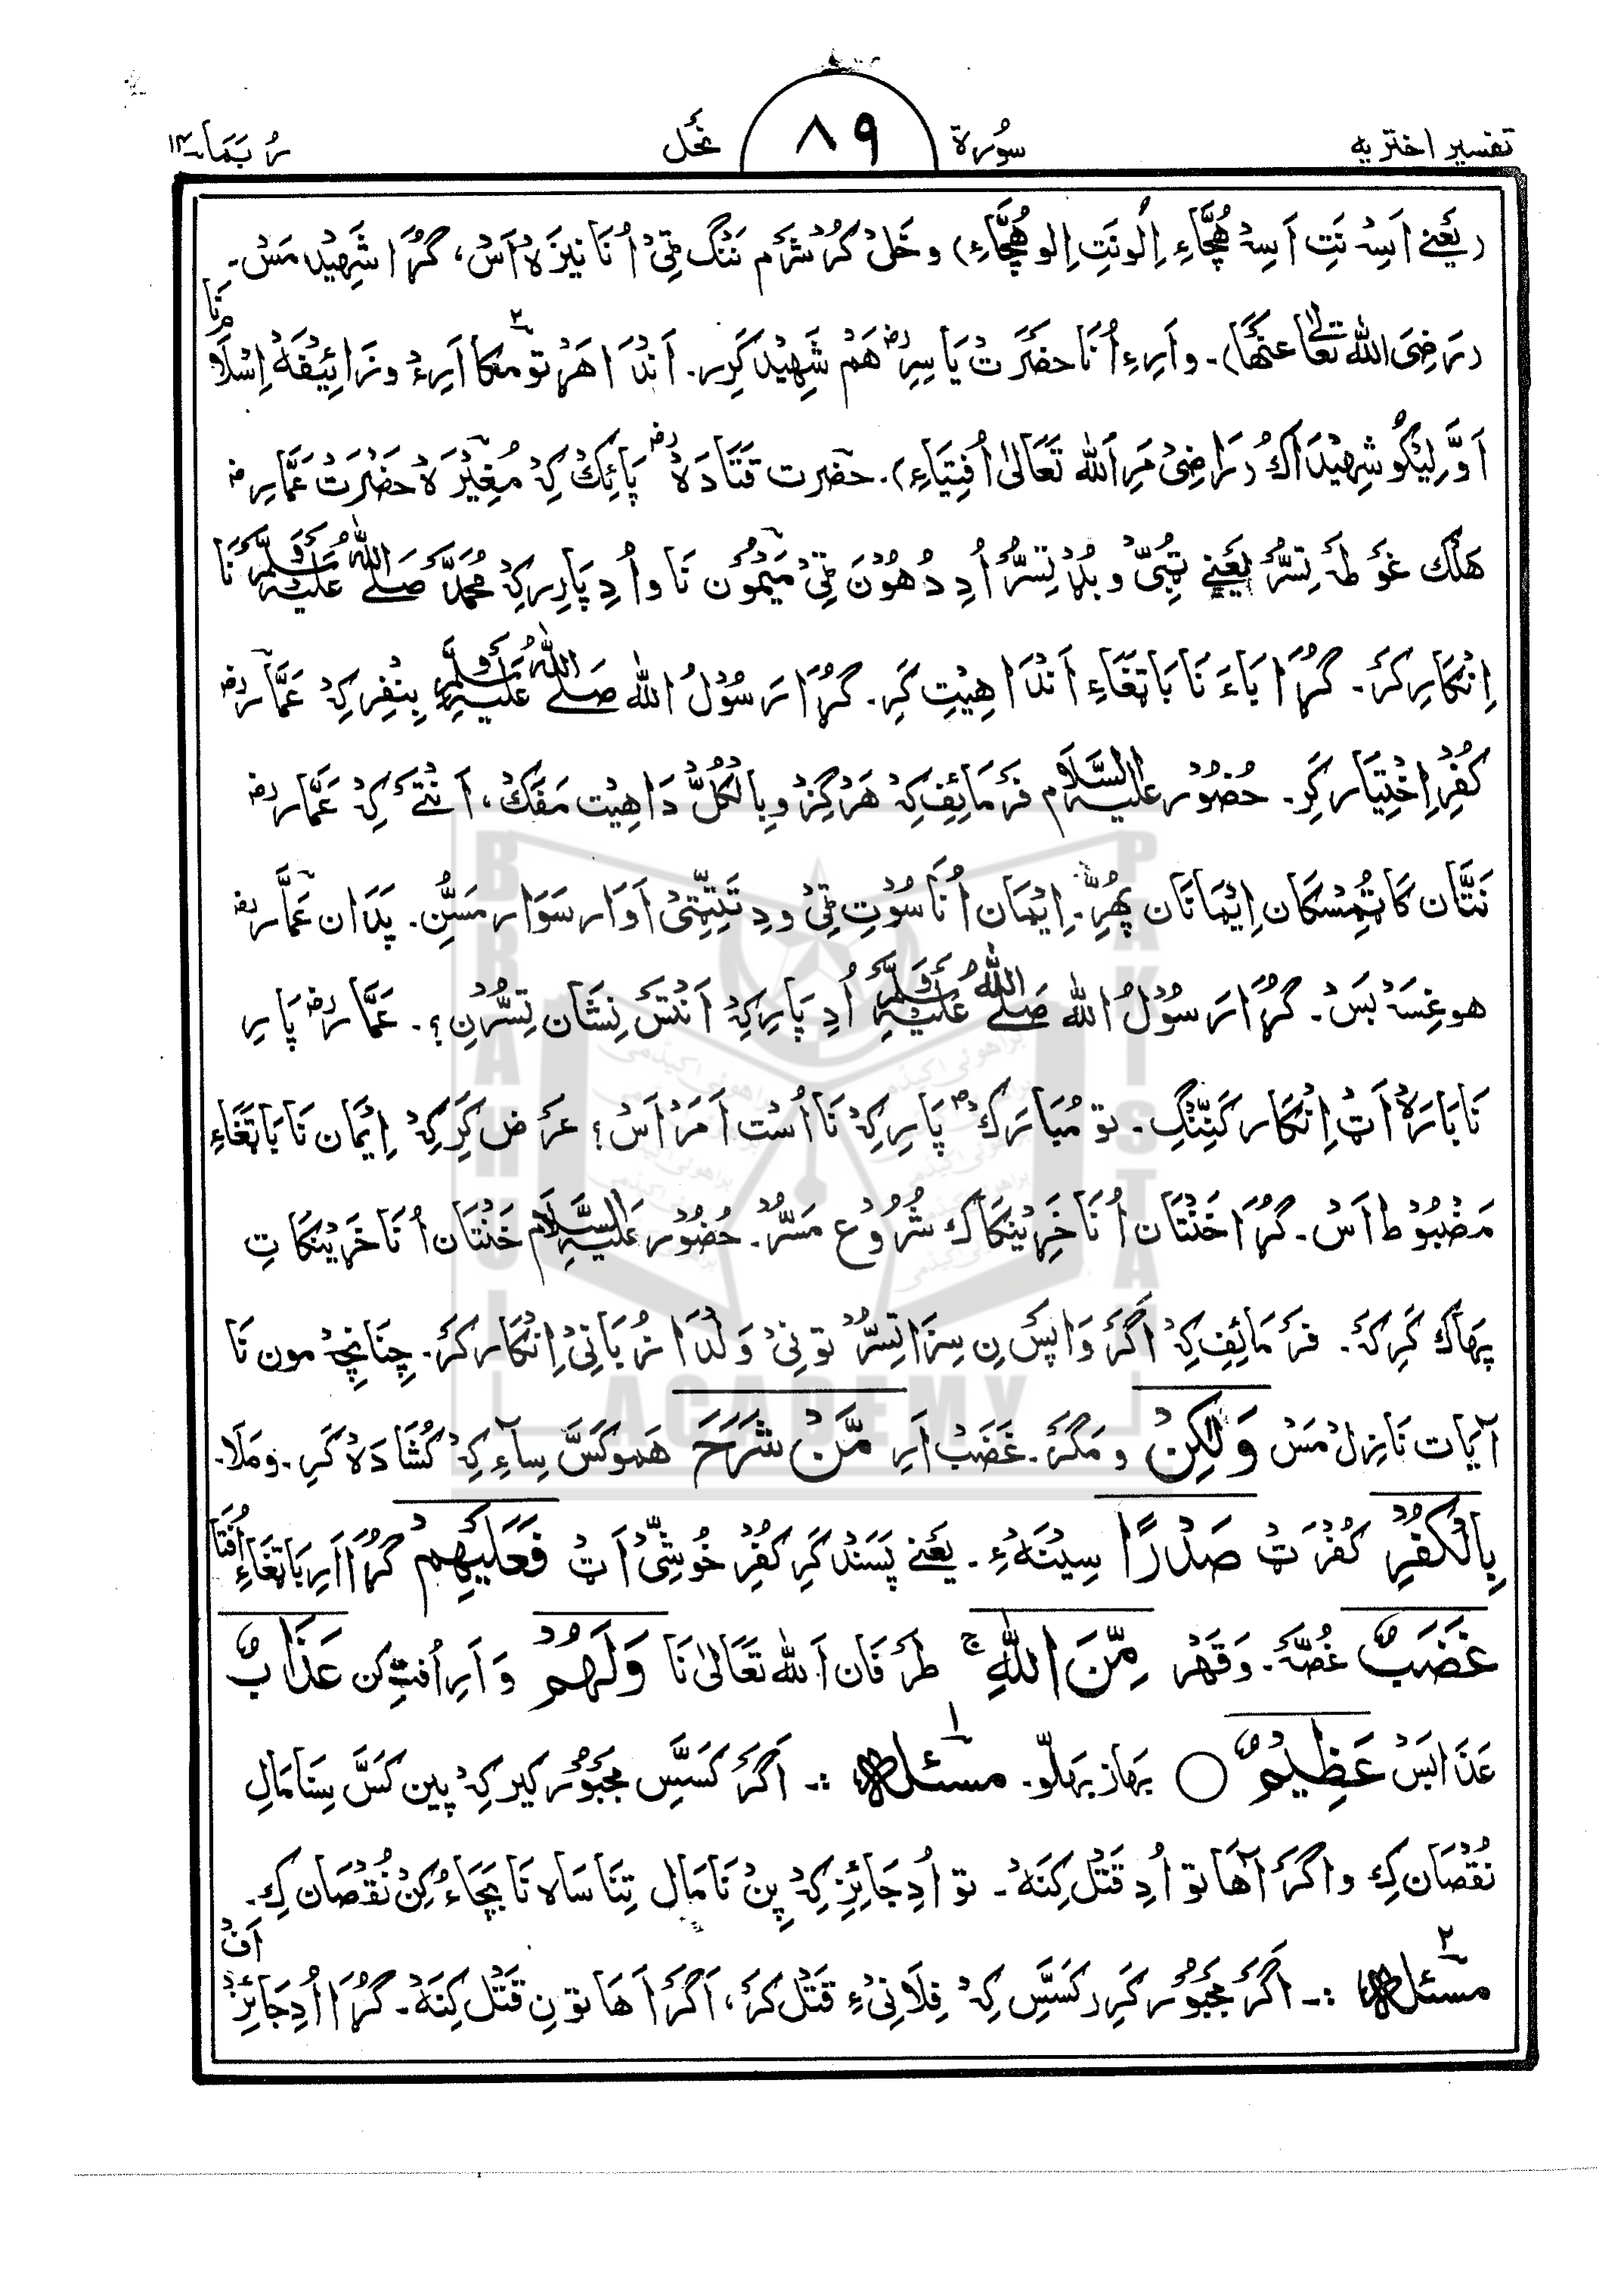 تفسیر اختریه
سُورة
٨٩
نَحْل
رُبَمَا ١٤
(یَعْنے اَسِہ نَتِ اَسِہ هُچَّاءِ اِلو نَتِ اِلو هُچَّاءِ) و خَلْ کُرْ شَرَم نَنْگ ٹِیْ اُنَا نیزَہ اَسْ، گُڑَا شَهِیْد مَسْ۔
(رَضِیَ اللّٰه تَعَالٰی عَنْهَا)۔ و اَرِءِ اُنَا حضَرَتْ یَاسِر رضہ هَمْ شَهِیْد کَرِر۔ اَنْدَا هَرْ تو مکا اَرِءْ و نَرَ ائِیْفَهْ اِسْلَام نَا
اَوَّلِیْکُو شِهِیْدَاکُ (رَاضِیْ مَرِ اَللّٰه تَعَالٰی اُفْتِیَاءِ)۔ حضرت قَتَادَہ رضہ پَائِکْ کِہْ مُغِیْرَہْ حَضْرَتْ عَمَّارِ رضہ
هَلْک غَوطَہ تِسُّرْ یَعْنے تُبِّیْ و بُڈْ تِسُّرْ اُدِ دُهُوْن ٹِیْ مَیْمُوْن نَا و اُدِ پَارِر کِہْ مُحَمَّد صَلَے اللّٰهُ عَلَیْہِ وَسَلَّمْ نَا
اِنْکَار کَرَ۔ گُڑَا بَاءَ نَا بَاتِغَاءِ اَنْدَا هِیْتِ کَرِ۔ گُڑَا رَسُوْلُ اللّٰه صَلَے اللّٰهُ عَلَیْہِ وَسَلَّمْ بِنْفِر کِہْ عَمَّار رضہ
کُفْرِ اِخْتِیَار کَرِ۔ حُضُوْر عَلَیْہِ السَّلَام فَرْمَائِفِ کِہْ هَرْگِزْ و بِالْکُلْ دَا هِیْت مَفَکْ، اَنْتَے کِہْ عَمَّار رضہ
نَتَّان کَاٹُمِسْکَان اِیْمَانَان پُهُرِّ۔ اِیْمَان اُنَا سُوْتِ ٹِیْ و دِتَّیٹِیْ اَوَار سَوَار مَسُّنِ۔ پَدَان عَمَّار رضہ
هوغِسَہ بَسْ۔ گُڑَا رَسُوْلُ اللّٰه صَلَے اللّٰهُ عَلَیْہِ وَسَلَّمْ اُدِ پَارِ کِہْ اَنْتَسْ نِشَان تِسُّرْنِ؟۔ عَمَّار رضہ پَارِ
نَا بَارَہْ اَٹْ اِنْکَار کَنِّنْگ۔ تو مُبَارَکْ پَارِ کِہْ نَا اُسْت اَمَرْ اَسْ؟ عَرَض کَرِ کِہْ اِیْمَان نَا بَاتِغَاءِ
مَضْبُوْط اَسْ۔ گُڑَا خَنْتَان اُنَا خَرِیْنکَاک شُرُوْع مَسُّرْ۔ حُضُوْر عَلَیْہِ السَّلَام خَنْتَان اُنَا خَرِیْنکَاتِ
پَهَاک کَرِکَہ۔ فَرْمَائِفِ کِہْ اَگَرْ وَاپَسْ نِ سِزَا تِسُّرْ تو نِیْ وَلْدَا زُبَانِیْ اِنْکَار کَرَ۔ چِنَانچِہْ مون نَا
آیَات نَازِلْ مَسْ وَلٰکِنْ و مَگَرْ۔ غَضَبْ اَرِ مَّنْ شَرَحَ هَمو کَسَّ سِآءِ کِہْ کُشَادَہْ کَرِ۔ و مَلَا۔
بِالْکُفْرِ کُفْرَتْ صَدْرًا سِیْنَہءِ۔ یَعْنے پَسَنْد کَرِ کُفْرِ خُوشِّیْ اَٹْ فَعَلَیْهِمْ گُڑَا اَرِ بَاتِغَاءِ اُفْتَا
غَضَبٌ غُصَّہ۔ وَ قَهْر مِّنَ اللّٰهِ ج طَرْفَان اَللّٰه تَعَالٰی نَا وَلَهُمْ وَ اَرِ اُفْتِ کن عَذَابٌ
عَذَابَسْ عَظِیْمٌ ○ بَهَاز بَهَلّو۔ مسئلہ ١ :۔ اَگَرْ کَسَّسِ مَجْبُوْر کیر کِہْ پین کَسَّ سِنَا مَالِ
نُقْصَان کِ و اگَرْ اَهَا تو اُدِ قَتْل کِنَهْ۔ تو اُدِ جَائِز کِہْ پِنْ نَا مَال تِنَا سَاہ نَا بَچَاءْ کِنْ نُقْصَان کِ۔
مسئلہ ٢ :۔ اَگَرْ مَجْبُوْر کَرِر کَسَّسِ کِہْ فِلَانِیْءِ قَتْل کَرَ، اَگَرْ اَهَا تو نِ قَتْل کِنَهْ۔ گُڑَا اُدِ جَائِز اَفْ